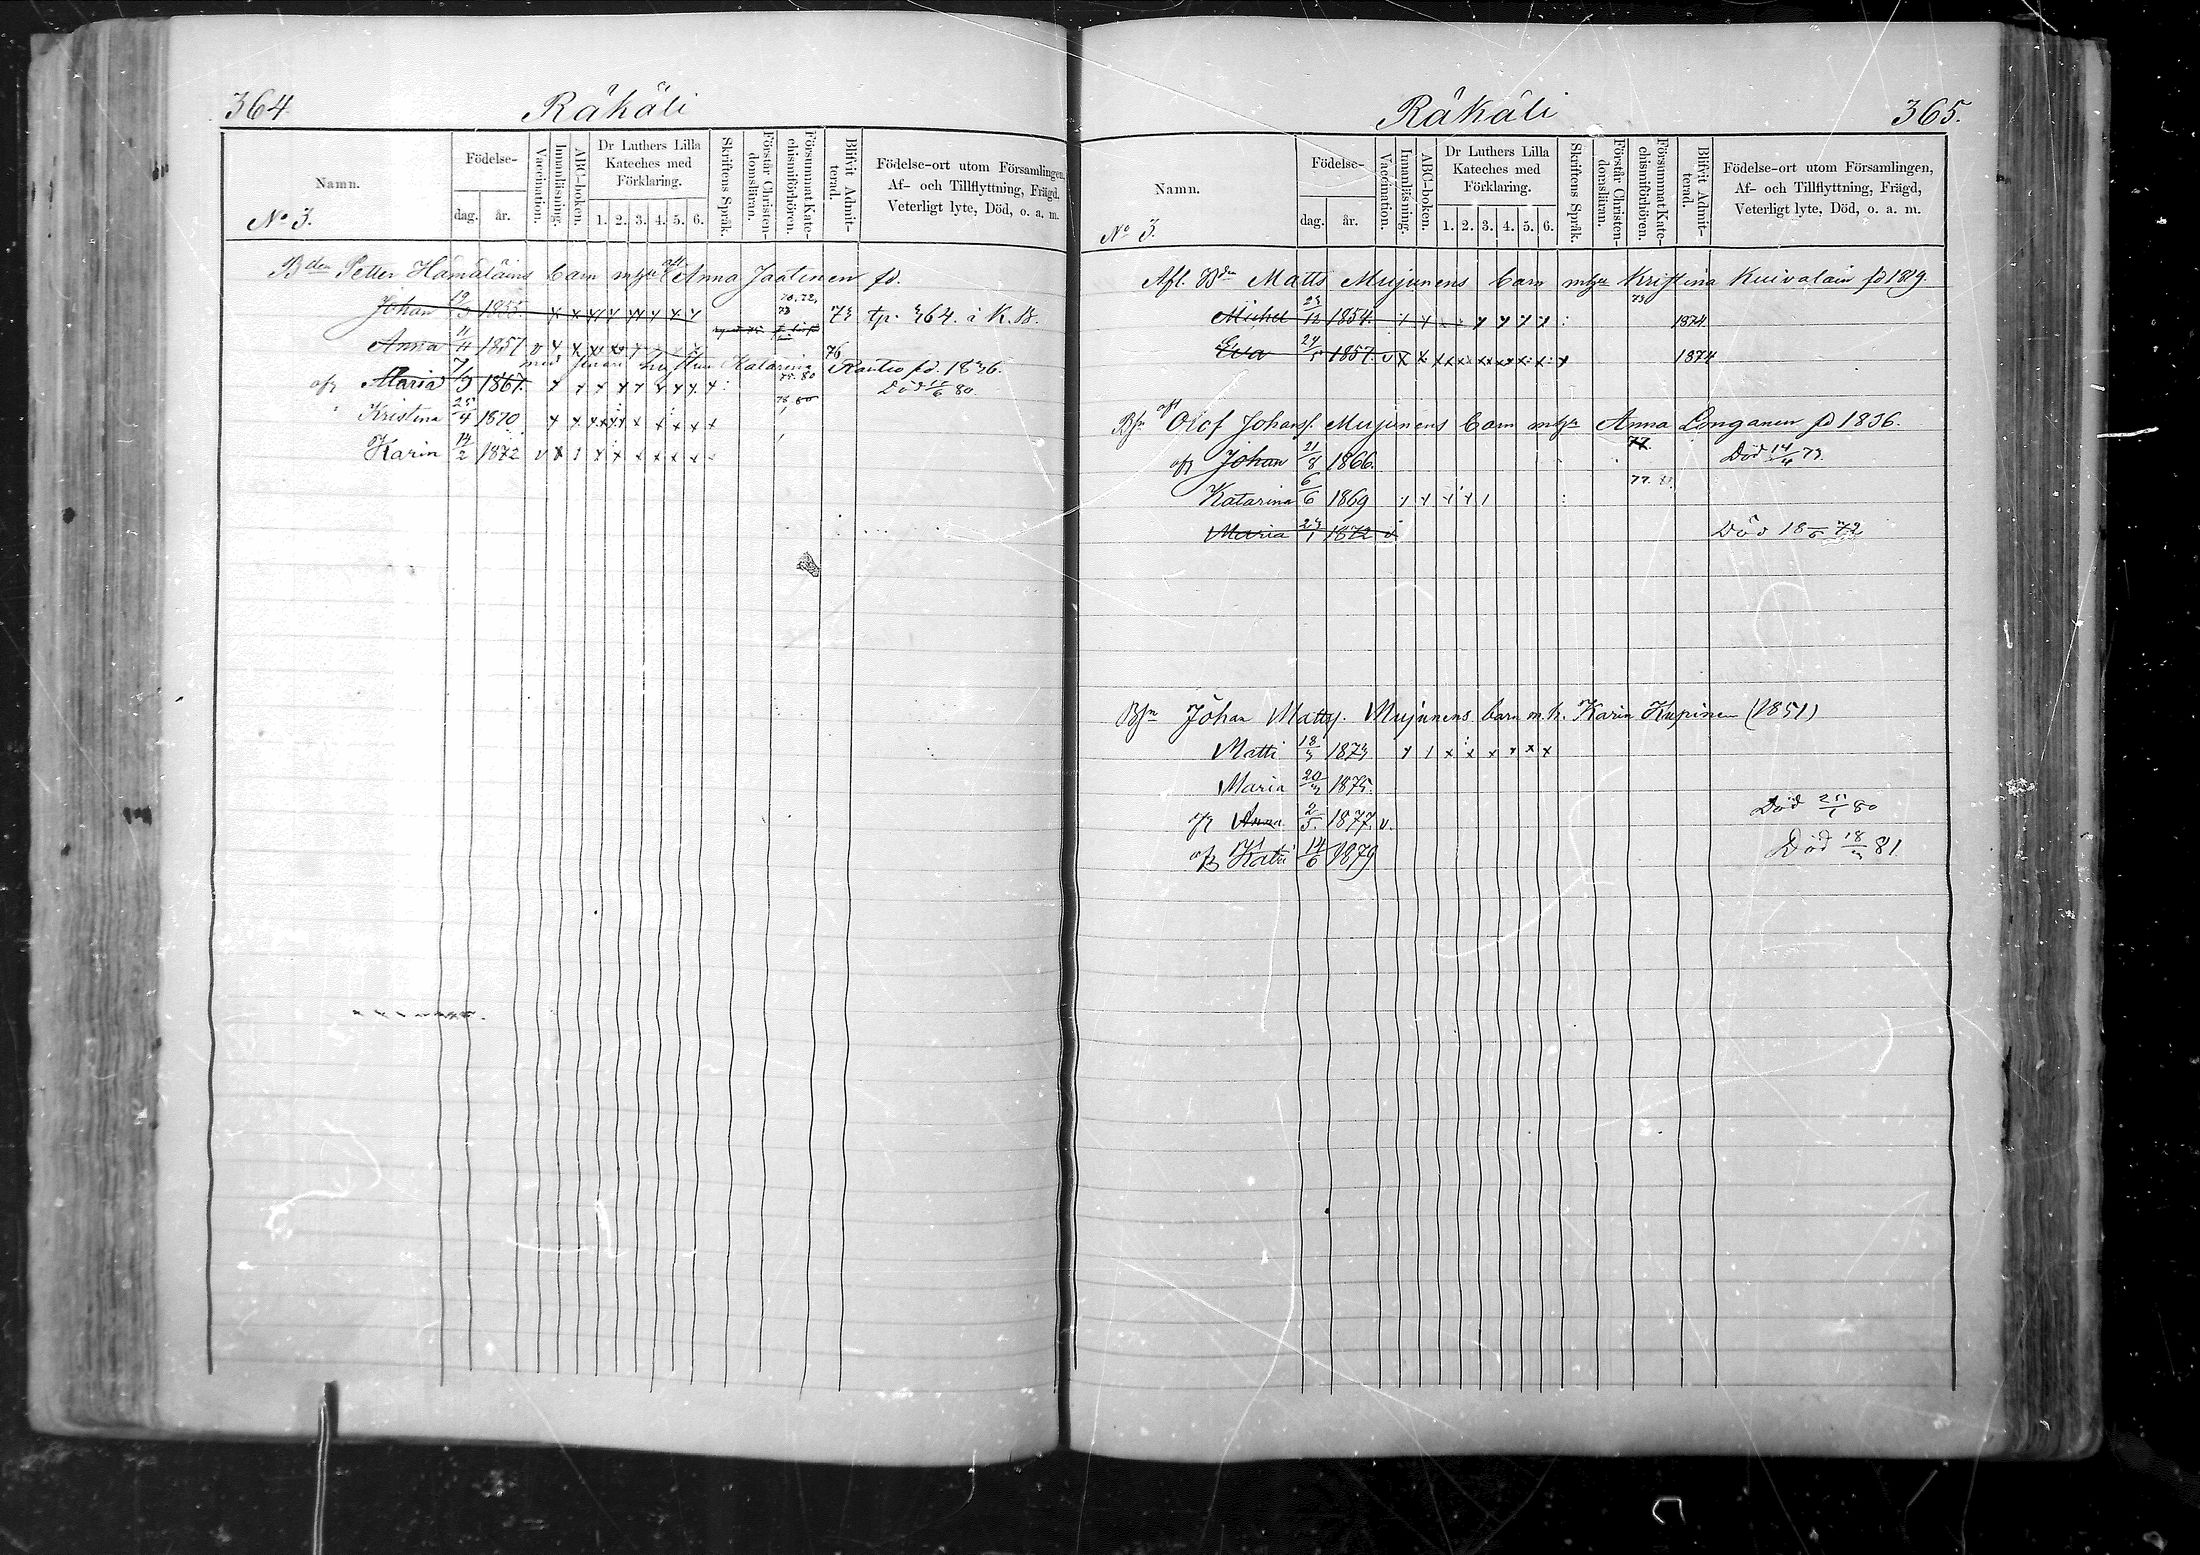 364. Räkäli
Namn. Födelse- dag. år. Vaccination. Innanläsning. ABC-boken. Dr Luthers Lilla Kateches med Förklaring. 1. 2. 3. 4. 5. 6. Skriftens Språk. Förstår Christendomsläran. Försummat Katechismiförhören. Blifvit Admitterad. Födelse-ort utom Församlingen, Af- och Tillflyttning, Frägd, Veterligt lyte, Död, o. a. m.
No 3.
Bden Petter Hämäläins barn m hu afl Anna Jaatinen fd.
Johan 1855. 73 tp. 364. i K. B.
Anna 11/11 1857 v 76
med senari hustrun Katarina Rautio fd. 1836.
Maria 7/3 1867. 80 Död 80.
Kristina 25/4 1870
Karin 14/2 1872 v
Räkäli 365.
Namn. Födelse- dag. år. Vaccination. Innanläsning. ABC-boken. Dr Luthers Lilla Kateches med Förklaring. 1. 2. 3. 4. 5. 6. Skriftens Språk. Förstår Christendomsläran. Försummat Katechismiförhören. Blifvit Admitterad. Födelse-ort utom Församlingen, Af- och Tillflyttning, Frägd, Veterligt lyte, Död, o. a. m.
No 3.
Afl. Bden Matts Mujunens barn m hu Kristina Kuivalain fd 1819.
Michel 23/12 1854. 73 1874
Eva 1857. v 1874
afl
Olof Johans. Mujunens barn m hu Anna Longanen fd 1836.
Johan 21/8 1866. 77. Död 14/4 73.
Katarina 6/6 1869 77. 81
Maria 23/1 1872 v Död 18/6 72
Johan Matts. Mujunens barn m. h. Karin Kupinen (1851)
Matti 18/3 1873
Maria 20/3 1875.
Anna 2/5. 1877. v. Död 80
Kati 14/6 1879 Död 18/3 81.